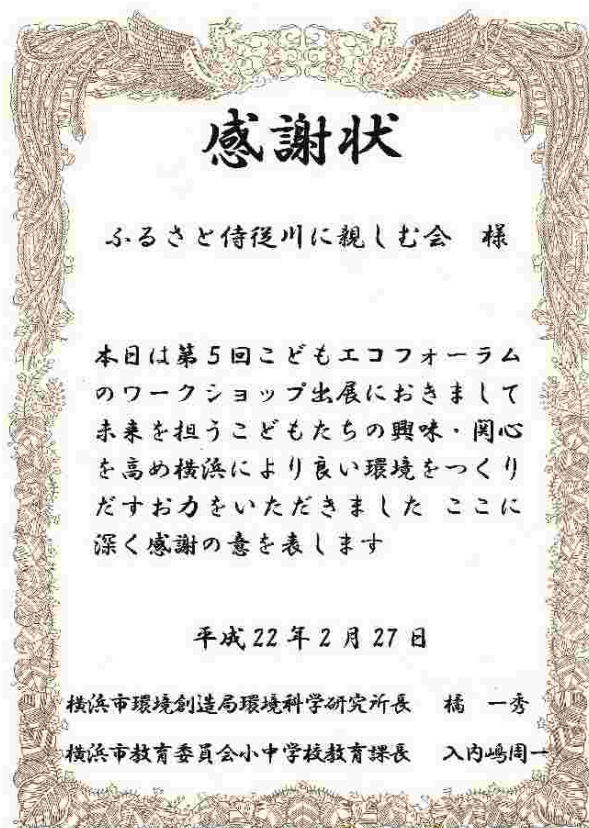 感謝状
ふるさと侍従川に親しむ会　様
本日は第５回こどもエコフォーラム
のワークショップ出展におきまして
未来を担うこどもたちの興味・関心
を高め横浜により良い環境をつくり
だすお力をいただきました ここに
深く感謝の意を表します
平成22年2月27日
横浜市環境創造局環境科学研究所長　橘　一秀
横浜市教育委員会小中学校教育課長　入内嶋周一